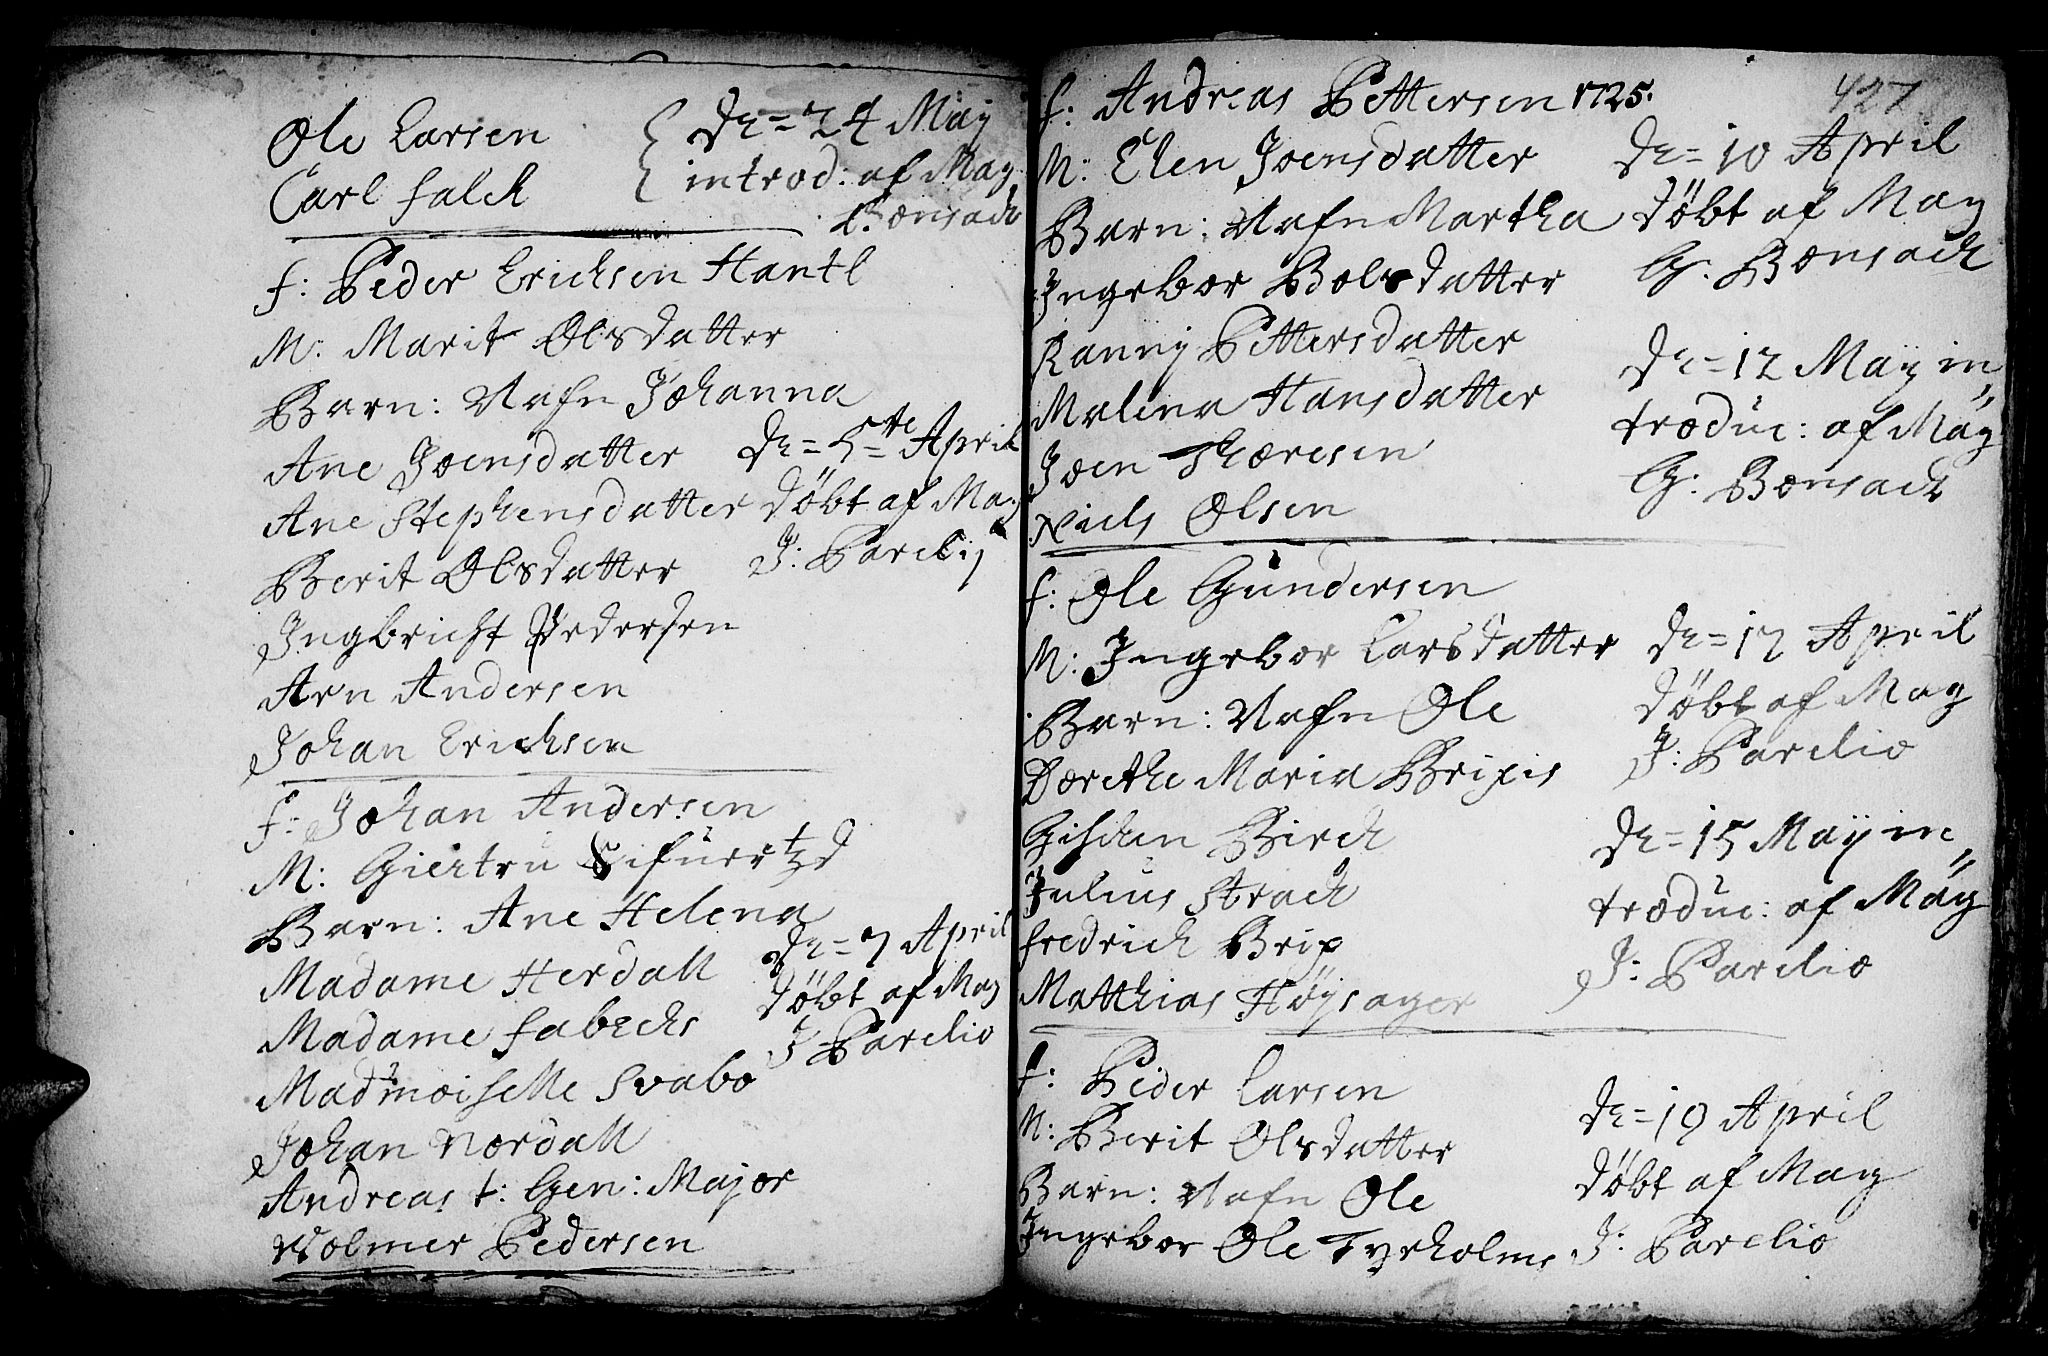 Ole Larsen
Carl Falck
De = 24 Maÿ
introd: af Mag
G: Bonsach
F: Peder Erichsen Hantl
M: Marit Olsdatter
Barn: Nafn Johanna
Ane Joensdatter
Ane Stephensdatter
Berit Olsdatter
Ingbricht Pedersen
Arn Andersen
Johan Erichsen
De = 5te April
Døbt af Mag
J: Parelij
F: Johan Andersen
M: Giertru Sifuertzd
Barn: Ane Helena
Madame Herdall
Madame Fabechs
Madmoiselle Svabo
Johan Nordall
Andreas t: Gen: Major
Wolmer Pedersen
De = 7 April
Døbt af Mag
J: Parelio
F: Andreas Pettersen 1725.
427
M: Elen Joensdatter
Barn: Nafn Martha
Ingebor Bolsdatter
Ranny Pettersdatter
Malena Hansdatter
Joen Thoresen
Niels Olsen
De = 10 April
Døbt af Mag
G: Bonsach
De = 12 Maÿ in
troduc: af Mag
G: Bonsach
F: Ole Gundersen
M: Ingebor Larsdatter
Barn: Nafn Ole
Dorethe Maria Bripis
Gischen Birch
Julius Strach
Fredrich Brip
Matthias Høysager
De = 17 April
Døbt af Mag
J: Parelio
De = 15 Maÿ in
troduc: af Mag
J: Parelio
F: Peder Larsen
M: Berit Olsdatter
Barn: Nafn Ole
Ingebor Ole Tyrholms
De = 19 April
Døbt af Mag
J: Parelio